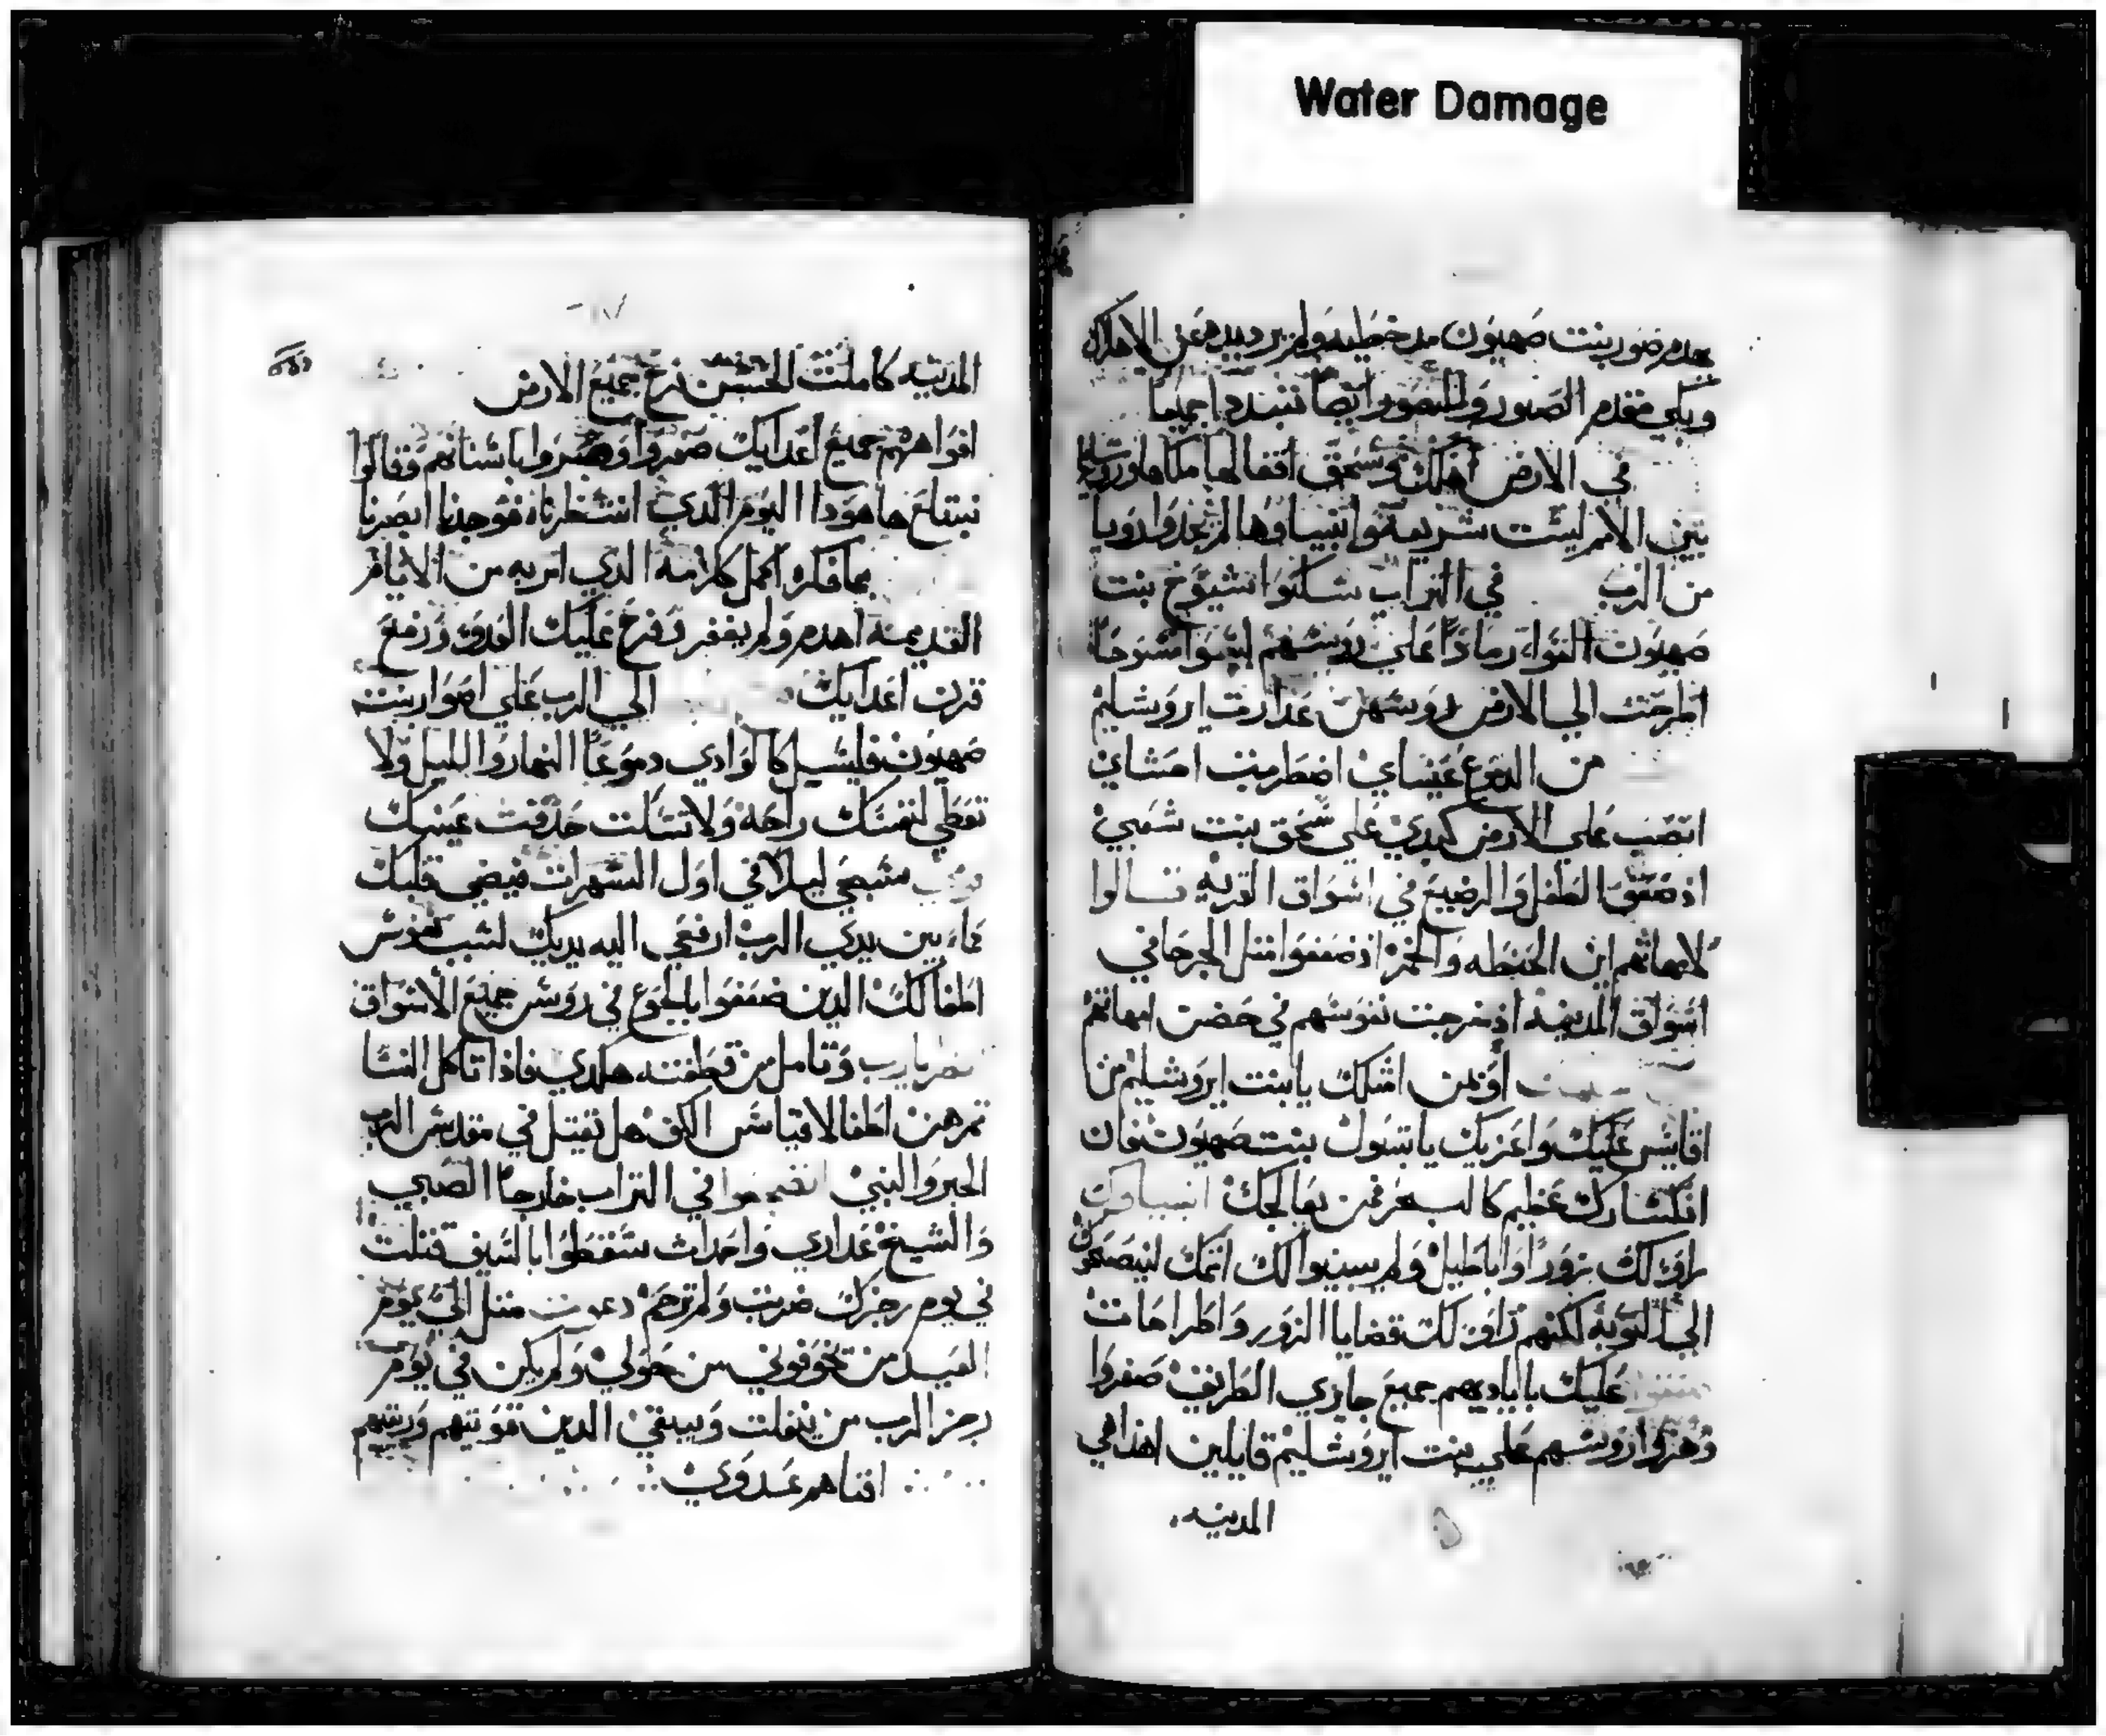 Water Damage
يهدم صور بنت صهيون مد خطيه ولم يرد يده عن الاهلاك
ويكي مقدم الصور والمنصور ايضا تتبدد جميعا
في الارض سحق اقفالها ملكها وروساها
بين الامم ليست شريعه وانبياوها لم يجدوا رويا
من الرب في التراب سكنوا شيوخ بنت
صهيون القوا رمادا علي روسهم لبسوا مسوحا
اطرحت الي الارض روسهن عدارت ايروشليم
من الدموع عيناي اضطربت احشاي
انصب علي الارض كبدي علي سحق بنت شعبي
اذ ضعف الطفل والرضيع في اسواق القريه قالوا
لامهاتهم اين الحنطه والخمر اذ ضعفوا مثل الجرحا في
اسواق المدينه اذ خرجت نفوسهم في حضن امهاتهم
اومن اشلك يا بنت ايروشليم من
اقايس عليك واعزيك يا بتول بنت صهيون فان
انكسارك عظيم كالبحر فمن يعالجك انبياوك
راوا لك زورا واباطيل ولم يبينوا لك اتمك ليبصعوك
الي التوبه لكنهم راوا لك قضايا الزور واطراحات
صفقوا عليك باياديهم جميع جازي الطريق صفروا
وهزوا روسهم علي بنت ايروشليم قايلين اهذا هي
المدينه
المدينه كاملت الحسن فرح جميع الارض
افواههم جميع اعدايك صفروا وصروا باسنانهم وقالوا
نبتلع ها هودا اليوم الذي انتظرناه فوجدنا ابصرنا
بما فكره اكمل كلامه الذي امر به من الايام
القديمه اهدم ولم يغفر وفرح عليك العدو ورفع
قرن اعدايك الي الرب علي اصوار بنت
صهيون فليسيل كالوادي دموعا النهار والليل ولا
تعطي لنفسك راحه ولا تسكت حدقت عينيك
سبحي ليلا في اول السهرات فيضي قلبك
ماء بين يدي الرب ارفعي اليه يديك لسبب نفوس
اطفالك الذين ضعفوا بالجوع في روس جميع الاسواق
انظر يا رب وتامل من قطفته هكدي فاذا تاكل النسا
تمرهن اطفالا قياس الكف هل تقتل في مقدس الرب
الحبر والنبي انضجعوا في التراب خارجا الصبي
والشيخ عداري واحداث سقطوا بالسيف قتلت
في يوم رجزك ضربت ولم ترحم دعوت مثل الي يوم
العيد من تخوفوني من حولي ولم يكن في يوم
رجز الرب من ينفلت ويبقي الدين قوتيهم وربيتهم
افناهم عدوي